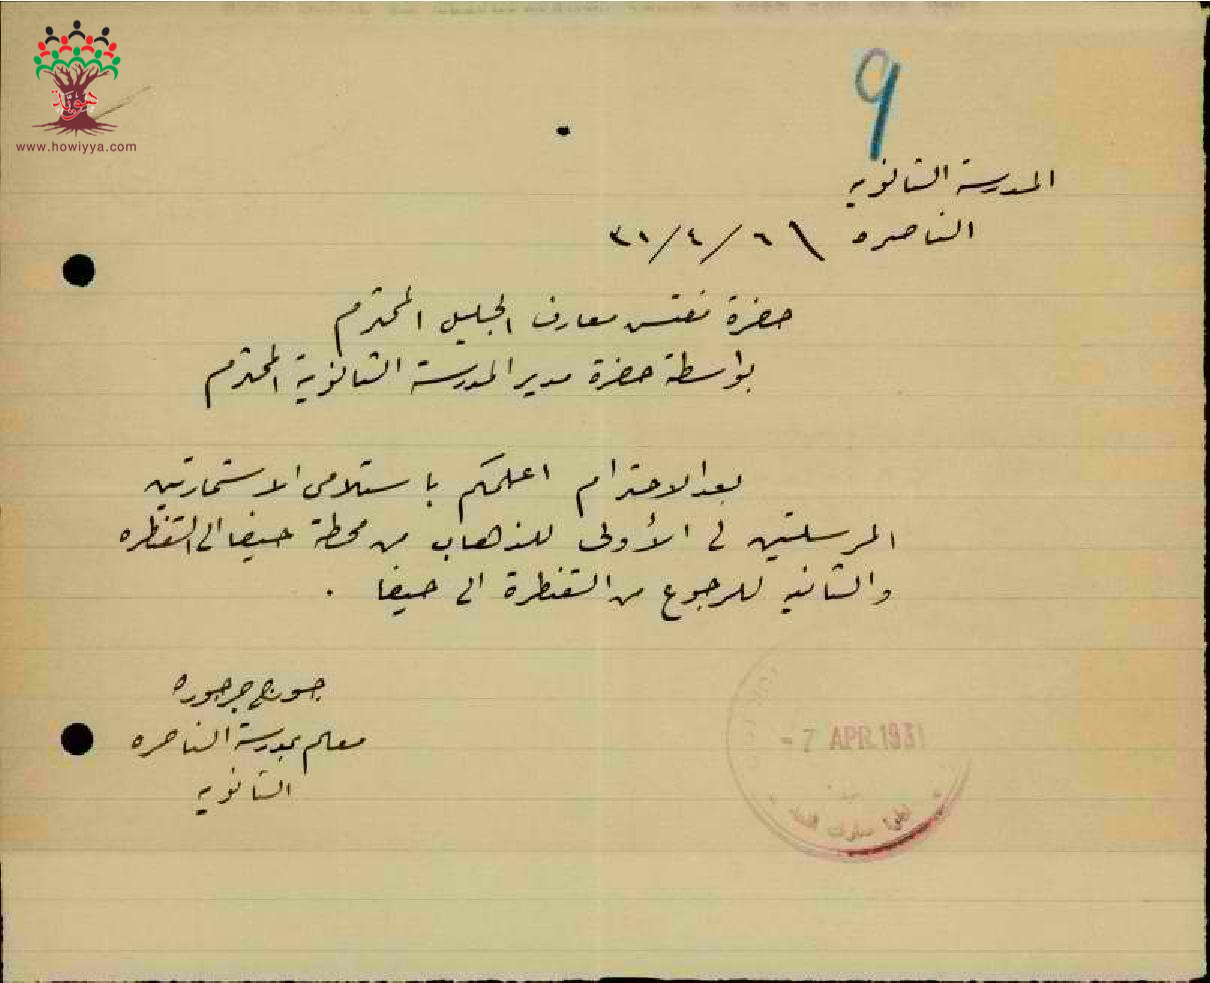 هوية
www.howiyya.com
9
المدرسة الثانويه
الناصره ٣١/٤/٦
حضرة مفتش معارف الجليل المحترم
بواسطة حضرة مدير المدرسة الثانوية المحترم
بعد الاحترام اعلمكم باستلامي الاستمارتين
المرسلتين لي الأولى للذهاب من محطة حيفا الى القنطره
والثانيه للرجوع من القنطرة الى حيفا .
جورج جرجوره
معلم بمدرسة الناصره
الثانويه
- 7 APR. 1931